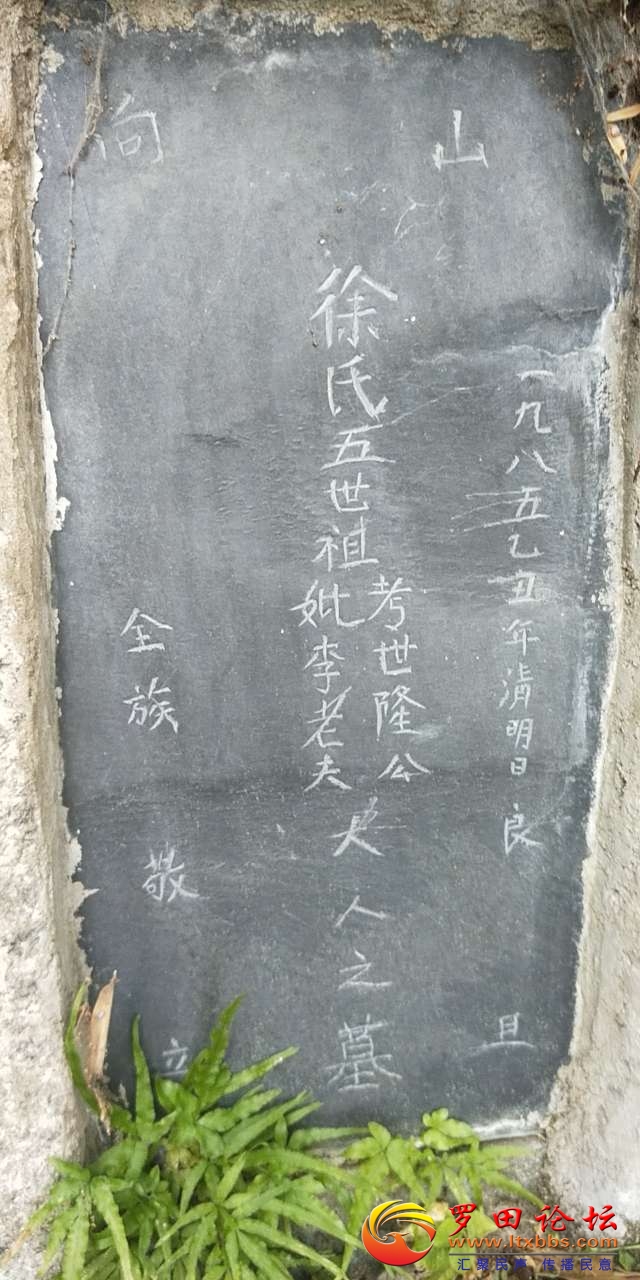 山
向
一九八五乙丑年清明日良旦
徐氏五世祖
考世隆公
妣李老夫
人之墓
全族敬立
罗田论坛
www.ltxbbs.com
汇聚民声 传播民意